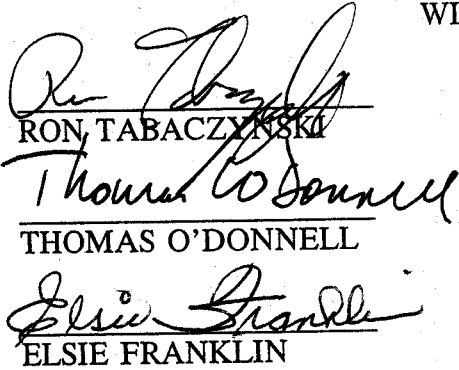 WI
Ron Tabaczynski
RON TABACZYNSKI
Thomas O'Donnell
THOMAS O'DONNELL
Elsie Franklin
ELSIE FRANKLIN